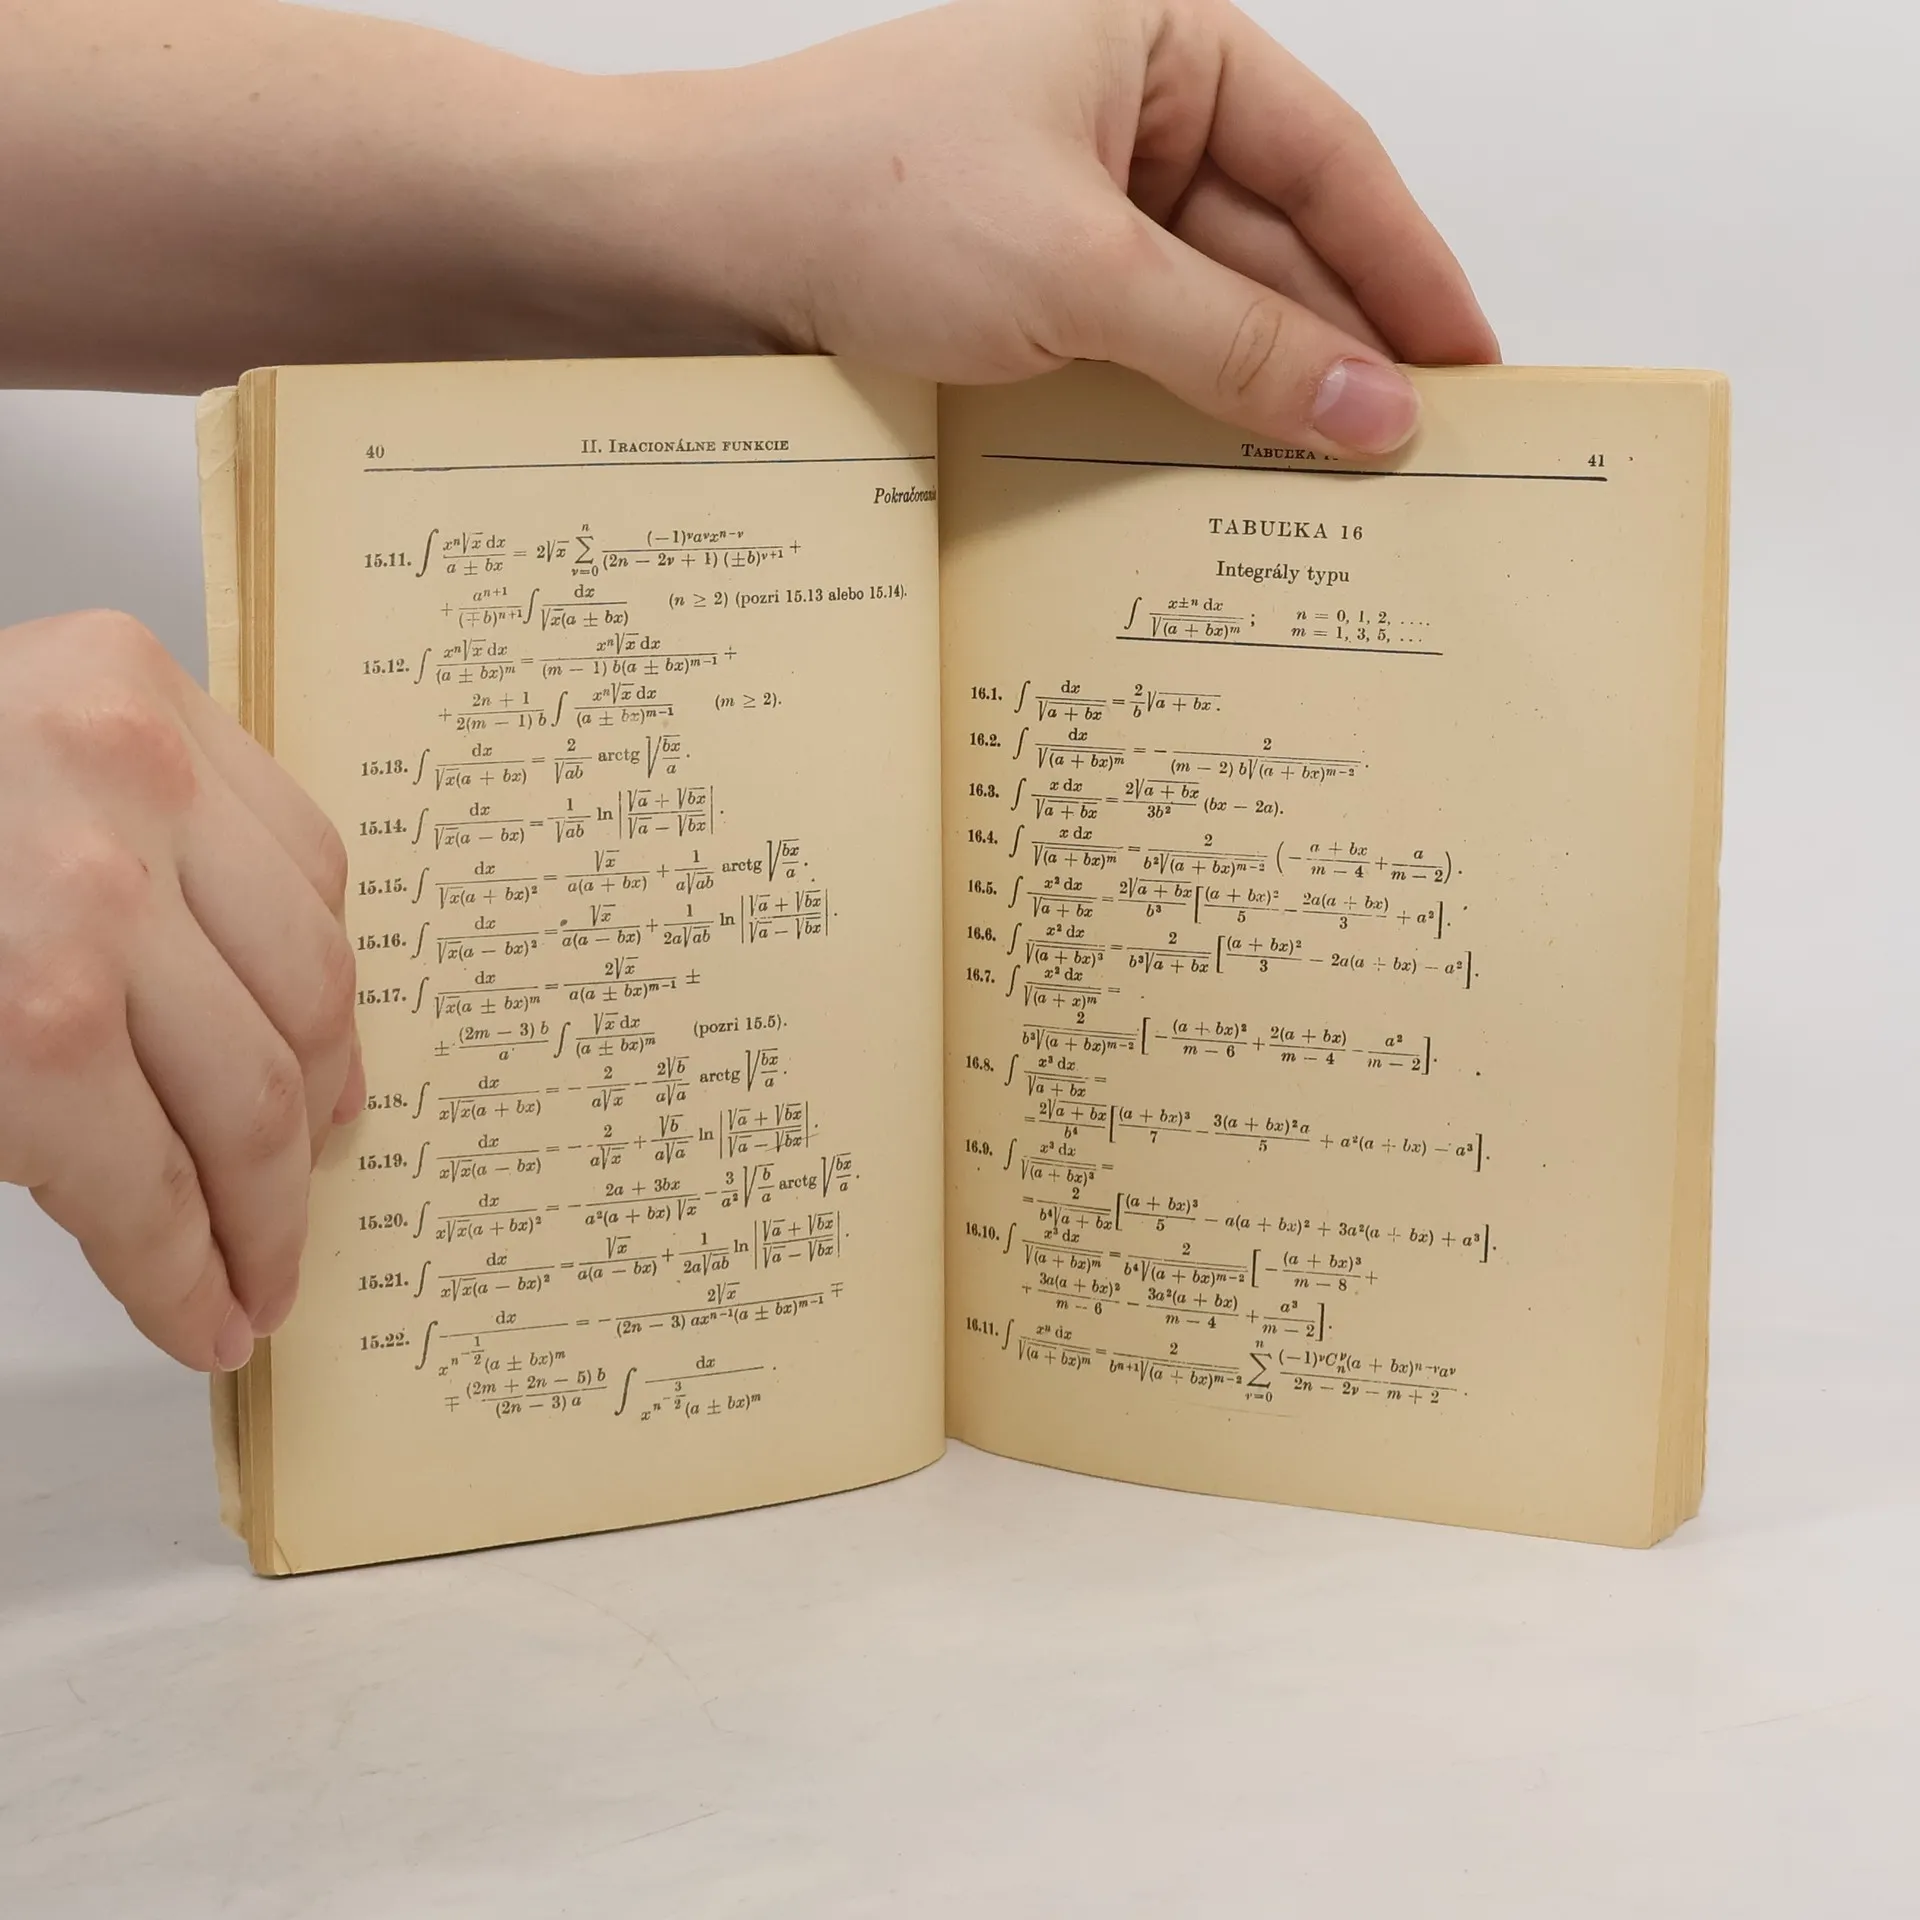 40 II. Iracionálne funkcie
15.11. ∫ xⁿ√x dx / (a ± bx) = 2√x ∑_{ν=0}^{n} (−1)^ν a^ν x^{n−ν} / ((2n − 2ν + 1) (±b)^{ν+1}) +
+ a^{n+1} / (∓b)^{n+1} ∫ dx / (√x(a ± bx)) (n ≥ 2) (pozri 15.13 alebo 15.14).
15.12. ∫ xⁿ√x dx / (a ± bx)^m = xⁿ√x dx / ((m − 1) b(a ± bx)^{m−1}) +
+ (2n + 1) / (2(m − 1) b) ∫ xⁿ√x dx / (a ± bx)^{m−1} (m ≥ 2).
15.13. ∫ dx / (√x(a + bx)) = 2/√ab arctg √(bx/a).
15.14. ∫ dx / (√x(a − bx)) = 1/√ab ln |(√a + √bx) / (√a − √bx)|.
15.15. ∫ dx / (√x(a + bx)²) = √x / (a(a + bx)) + 1/(a√ab) arctg √(bx/a).
15.16. ∫ dx / (√x(a − bx)²) = √x / (a(a − bx)) + 1/(2a√ab) ln |(√a + √bx) / (√a − √bx)|.
15.17. ∫ dx / (√x(a ± bx)^m) = 2√x / (a(a ± bx)^{m−1}) ±
± (2m − 3) b / a ∫ √x dx / (a ± bx)^m (pozri 15.5).
5.18. ∫ dx / (x√x(a + bx)) = − 2/(a√x) − 2√b/(a√a) arctg √(bx/a).
15.19. ∫ dx / (x√x(a − bx)) = − 2/(a√x) + √b/(a√a) ln |(√a + √bx) / (√a − √bx)|.
15.20. ∫ dx / (x√x(a + bx)²) = − (2a + 3bx) / (a²(a + bx) √x) − 3/a² √(b/a) arctg √(bx/a).
15.21. ∫ dx / (x√x(a − bx)²) = √x / (a(a − bx)) + 1/(2a√ab) ln |(√a + √bx) / (√a − √bx)|.
15.22. ∫ dx / (x^{n−1/2}(a ± bx)^m) = − 2√x / ((2n − 3) ax^{n−1}(a ± bx)^{m−1}) ∓
∓ (2m + 2n − 5) b / ((2n − 3) a) ∫ dx / (x^{n−3/2}(a ± bx)^m).
41
TABUĽKA 16
Integrály typu
∫ x^{±n} dx / √(a + bx)^m ; n = 0, 1, 2, ....
m = 1, 3, 5, ...
16.1. ∫ dx / √(a + bx) = 2/b √(a + bx).
16.2. ∫ dx / √(a + bx)^m = − 2 / ((m − 2) b√(a + bx)^{m−2}).
16.3. ∫ x dx / √(a + bx) = 2√(a + bx) / 3b² (bx − 2a).
16.4. ∫ x dx / √(a + bx)^m = 2 / (b²√(a + bx)^{m−2}) (− (a + bx)/(m − 4) + a/(m − 2)).
16.5. ∫ x² dx / √(a + bx) = 2√(a + bx) / b³ [(a + bx)²/5 − 2a(a + bx)/3 + a²].
16.6. ∫ x² dx / √(a + bx)³ = 2 / (b³√(a + bx)) [(a + bx)²/3 − 2a(a + bx) − a²].
16.7. ∫ x² dx / √(a + x)^m =
2 / (b³√(a + bx)^{m−2}) [− (a + bx)²/(m − 6) + 2(a + bx)/(m − 4) − a²/(m − 2)].
16.8. ∫ x³ dx / √(a + bx) =
= 2√(a + bx) / b⁴ [(a + bx)³/7 − 3(a + bx)²a/5 + a²(a + bx) − a³].
16.9. ∫ x³ dx / √(a + bx)³ =
= 2 / (b⁴√(a + bx)) [(a + bx)³/5 − a(a + bx)² + 3a²(a + bx) + a³].
16.10. ∫ x³ dx / √(a + bx)^m = 2 / (b⁴√(a + bx)^{m−2}) [− (a + bx)³/(m − 8) +
+ 3a(a + bx)²/(m − 6) − 3a²(a + bx)/(m − 4) + a³/(m − 2)].
16.11. ∫ xⁿ dx / √(a + bx)^m = 2 / (b^{n+1}√(a + bx)^{m−2}) ∑_{ν=0}^{n} (−1)^ν C_n^ν(a + bx)^{n−ν}a^ν / (2n − 2ν − m + 2).